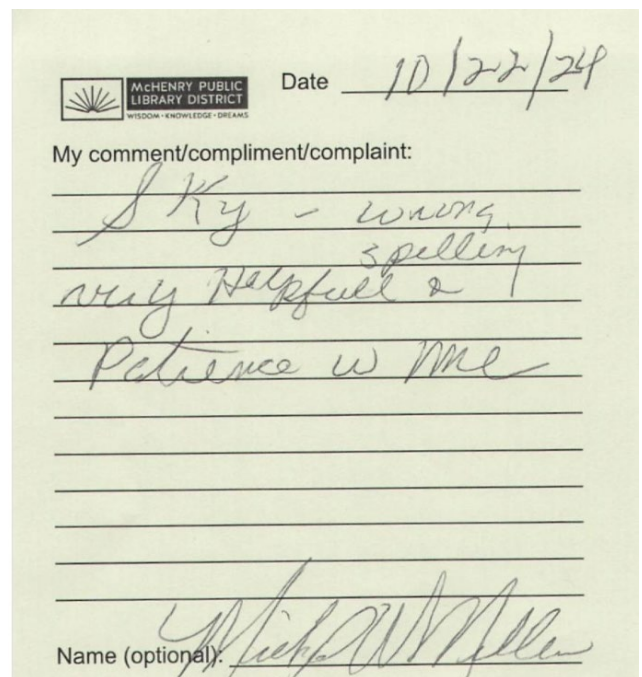 McHENRY PUBLIC
LIBRARY DISTRICT
WISDOM • KNOWLEDGE • DREAMS
Date 10/22/24
My comment/compliment/complaint:
SKy - wrong
spelling
very Helpfull &
Patience w me
Name (optional):